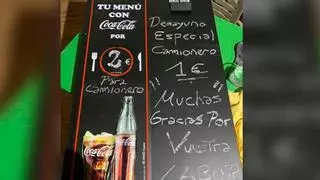 TU MENÚ
CON
Coca-Cola
POR
2€
Para
camionero
Coca-Cola
Desayuno
Especial
Camionero
1€
Muchas
Gracias Por
Vuestra
LABOR